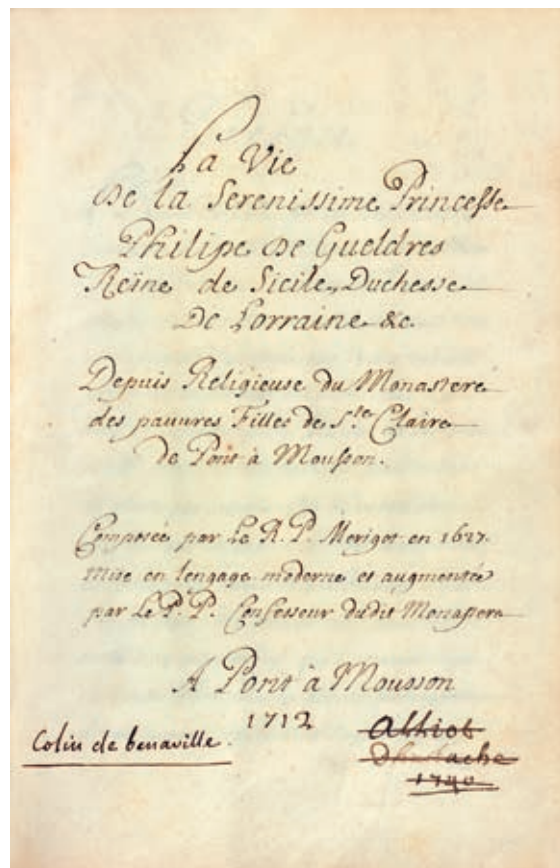 La Vie
De la Serenissime Princesse
Philipe De Gueldres
Reïne de Sicile, Duchesse
De Lorraine &c.
Depuis Religieuse du Monastere
des pauures Filles de S.te Claire
de Pont à Mousson.
Composée par Le R. P. Merigot en 1627.
mise en lengage moderne et augmentée
par Le P. P. Confesseur dudit Monastere
A Pont à Mousson
1712
Colin de benaville.
Alliot
1740